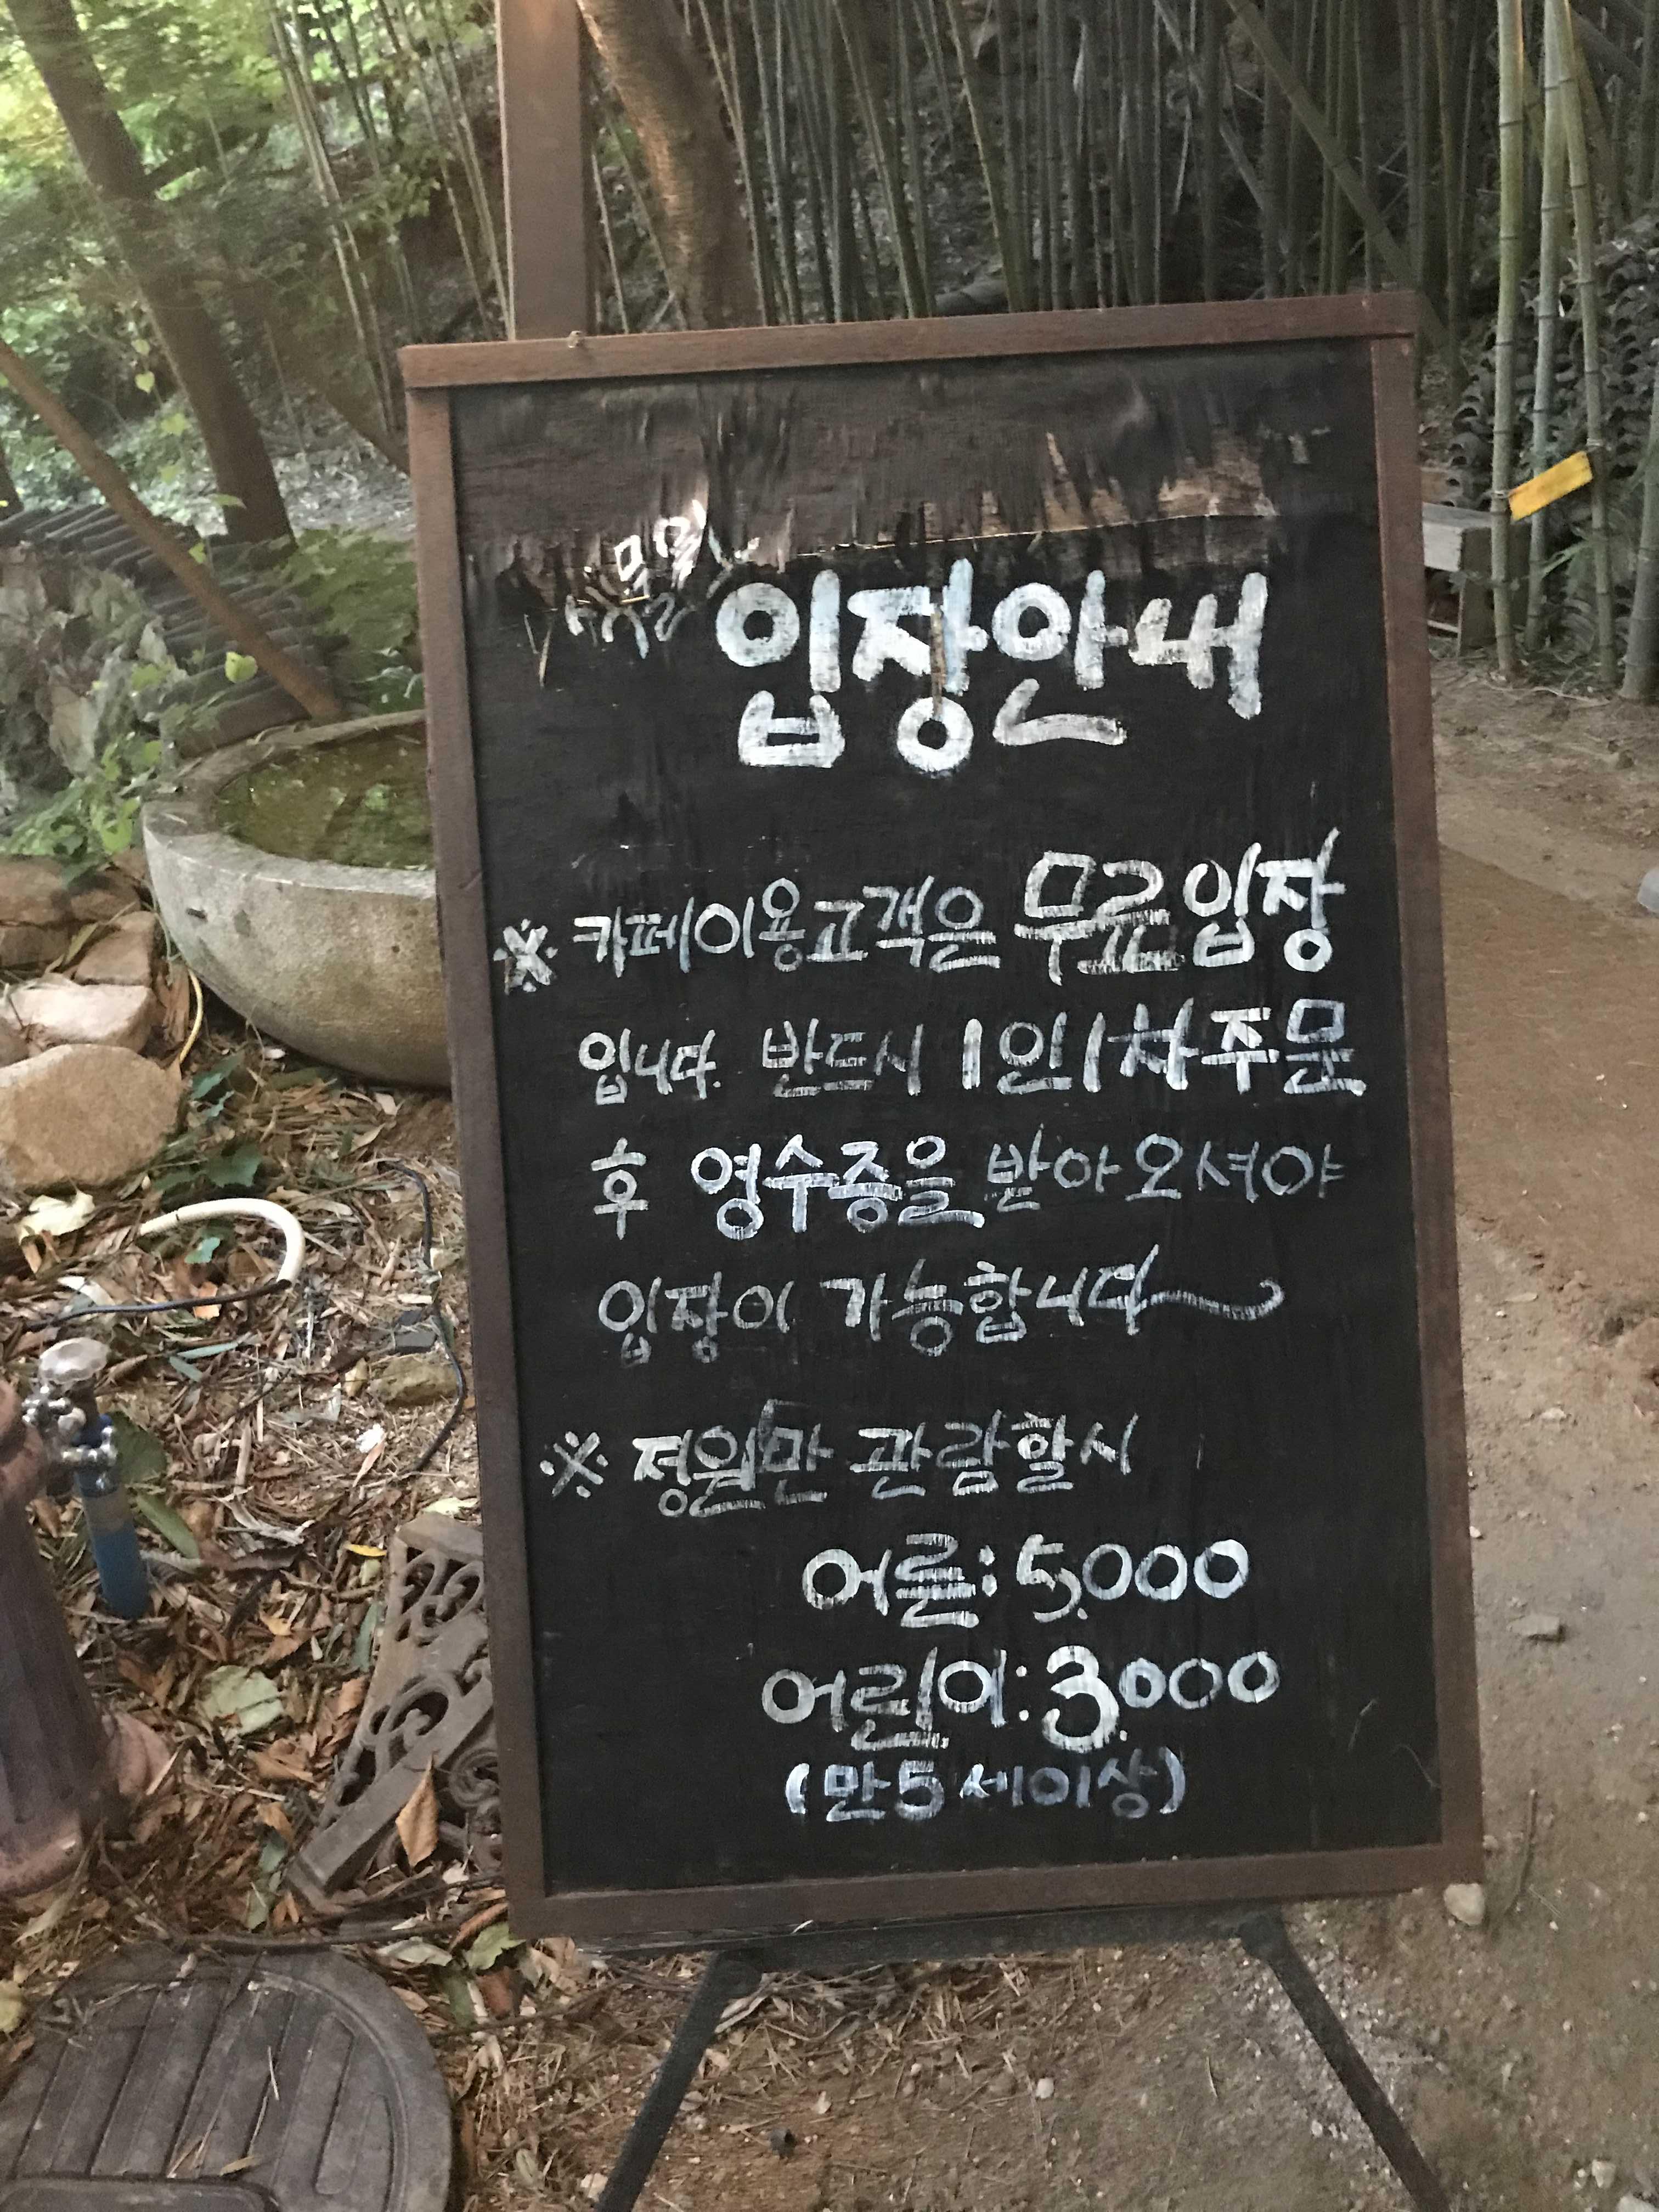 입장안내
※ 카페이용고객은 무료입장
입니다. 반드시 1인1차주문
후 영수증을 받아오셔야
입장이 가능합니다~
※ 정원만 관람할시
어른: 5,000
어린이: 3,000
(만5세이상)